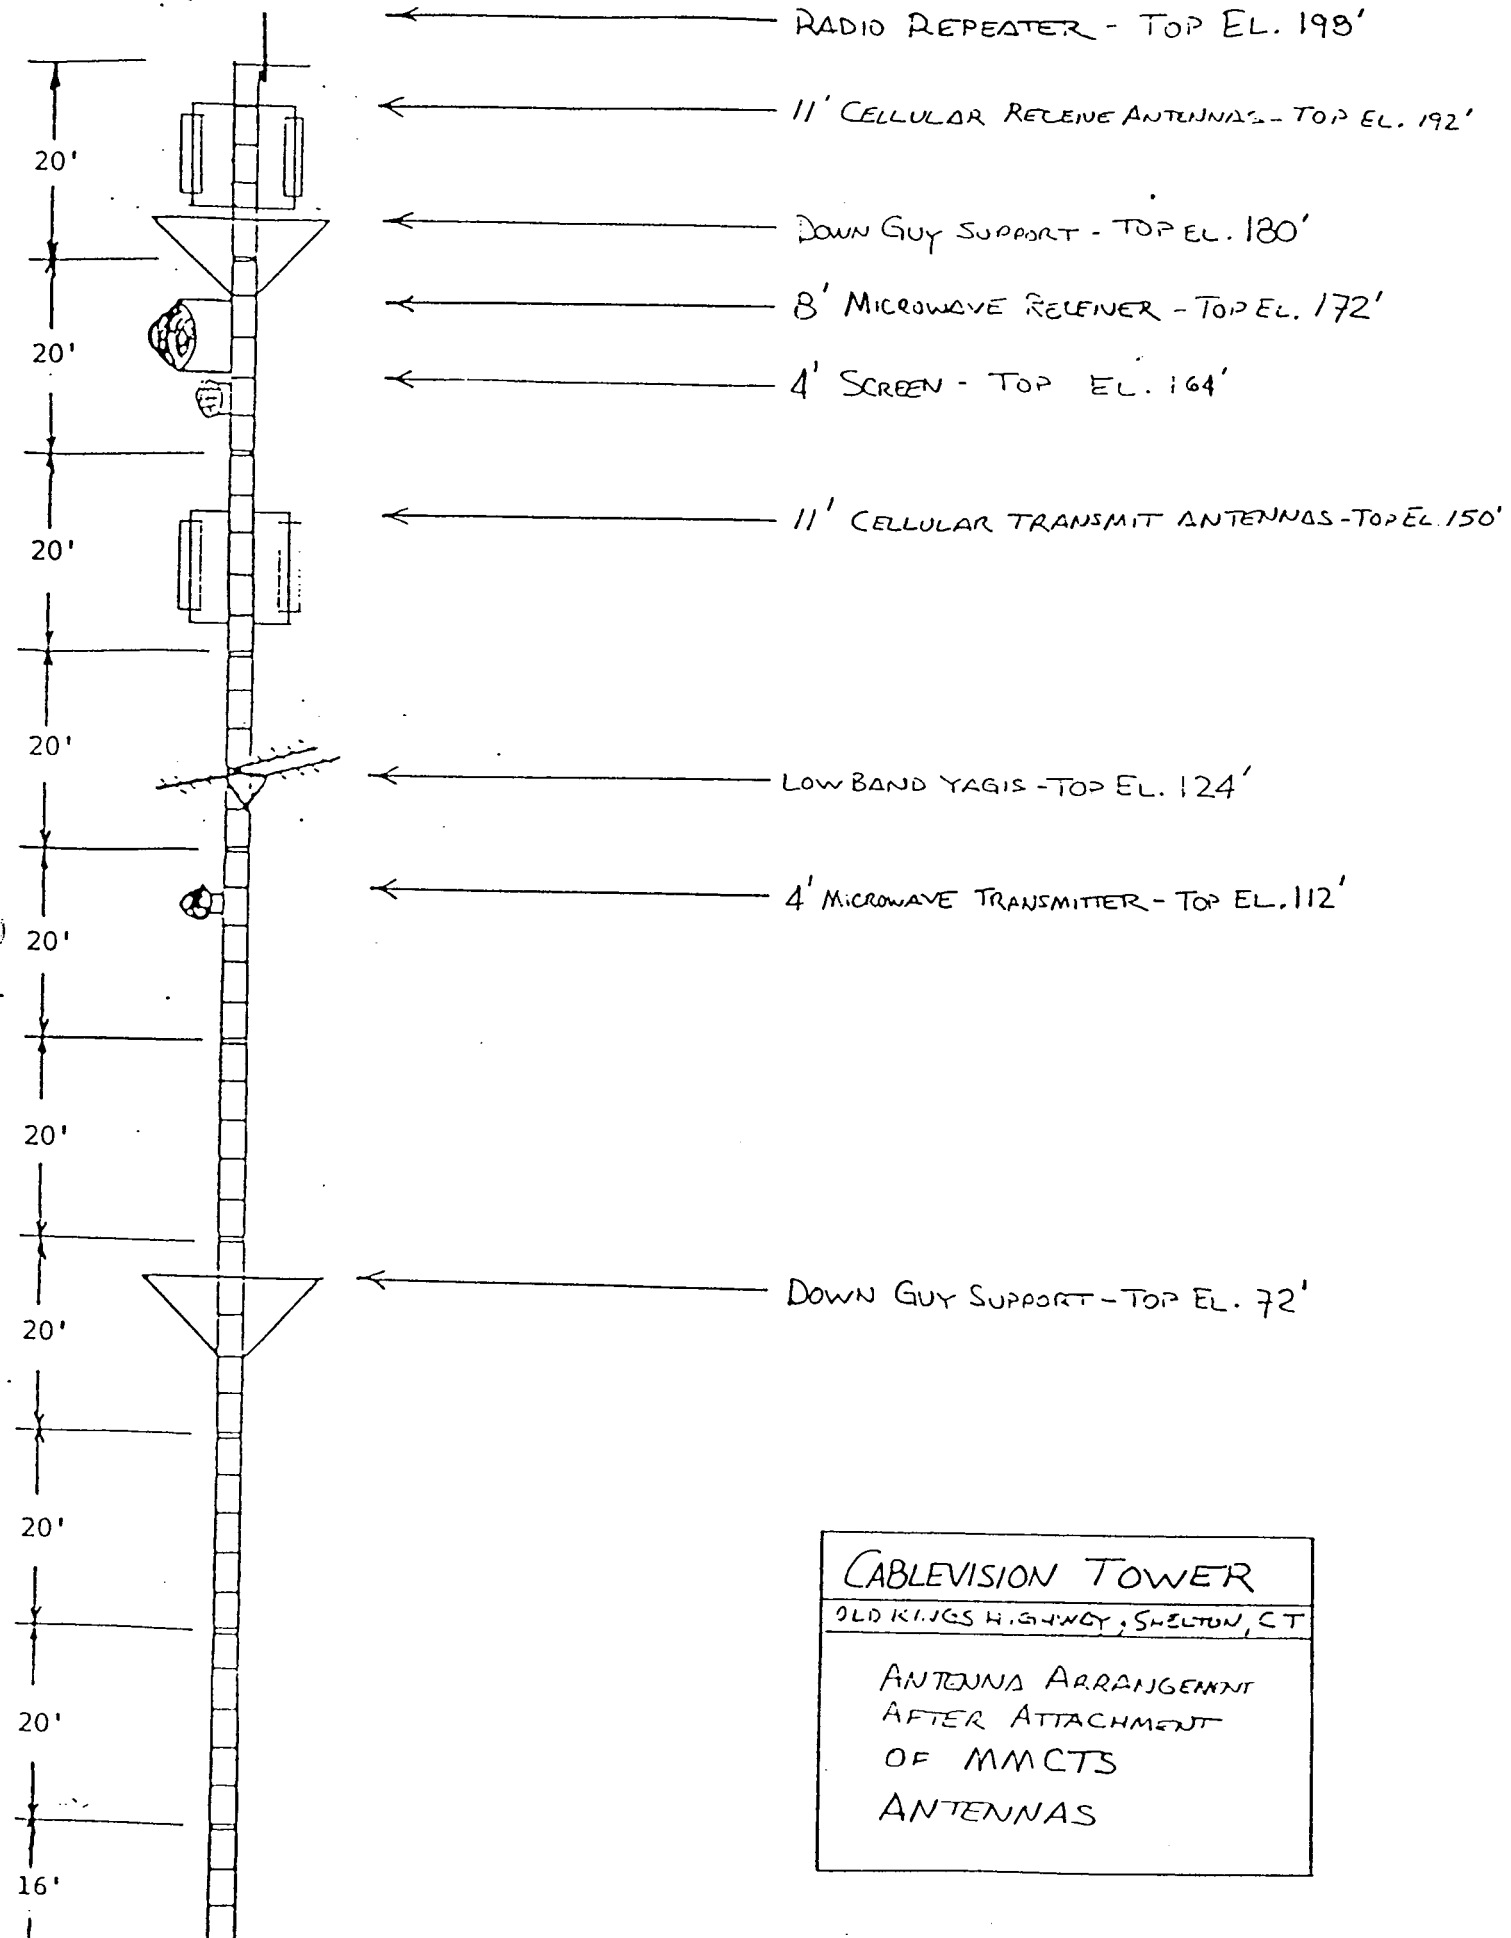 RADIO REPEATER - TOP EL. 198'
11' CELLULAR RECEIVE ANTENNAS - TOP EL. 192'
DOWN GUY SUPPORT - TOP EL. 180'
8' MICROWAVE RECEIVER - TOP EL. 172'
4' SCREEN - TOP EL. 164'
11' CELLULAR TRANSMIT ANTENNAS - TOP EL. 150'
LOW BAND YAGIS - TOP EL. 124'
4' MICROWAVE TRANSMITTER - TOP EL. 112'
DOWN GUY SUPPORT - TOP EL. 72'
20'
20'
20'
20'
20'
20'
20'
20'
20'
16'
CABLEVISION TOWER
OLD KINGS HIGHWAY, SHELTON, CT
ANTENNA ARRANGEMENT
AFTER ATTACHMENT
OF MMCTS
ANTENNAS